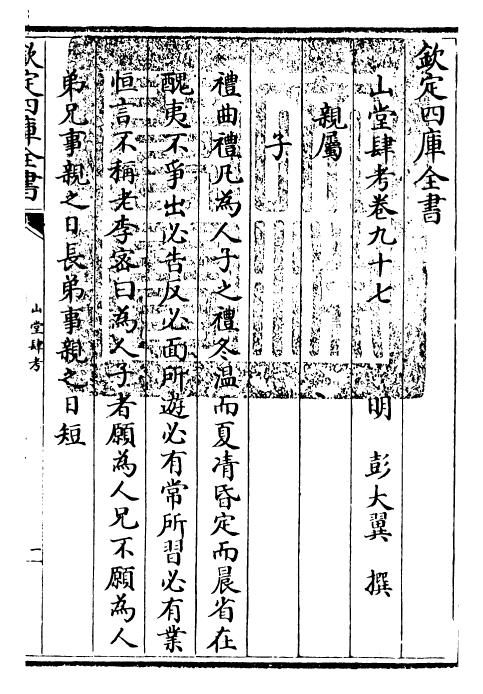 欽定四庫全書
山堂肆考卷九十七　明　彭大翼　撰
親屬
子
禮曲禮凡為人子之禮冬温而夏凊昏定而晨省在
醜夷不爭出必告反必面所遊必有常所習必有業
恒言不稱老李密曰為人子者願為人兄不願為人
弟兄事親之日長弟事親之日短
欽定四庫全書
山堂肆考